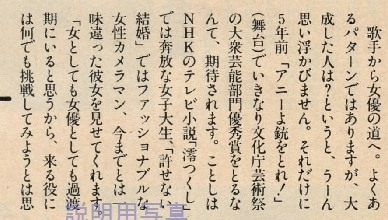 歌手から女優の道へ。よくあ
るパターンではありますが、大
成した人は？というと、うーん
思い浮かびません。それだけに
5年前「アニーよ銃をとれ！」
（舞台）でいきなり文化庁芸術祭
の大衆芸能部門優秀賞をとるな
んて、期待されます。ことしは
NHKのテレビ小説「澪つくし」
では奔放な女子大生、「許せない
結婚」ではファッショナブルな
女性カメラマン、今までとは
味違った彼女を見せてくれます。
「女としても女優としても過渡
期にいると思うから、来る役に
は何でも挑戦してみようとは思
説明用写真